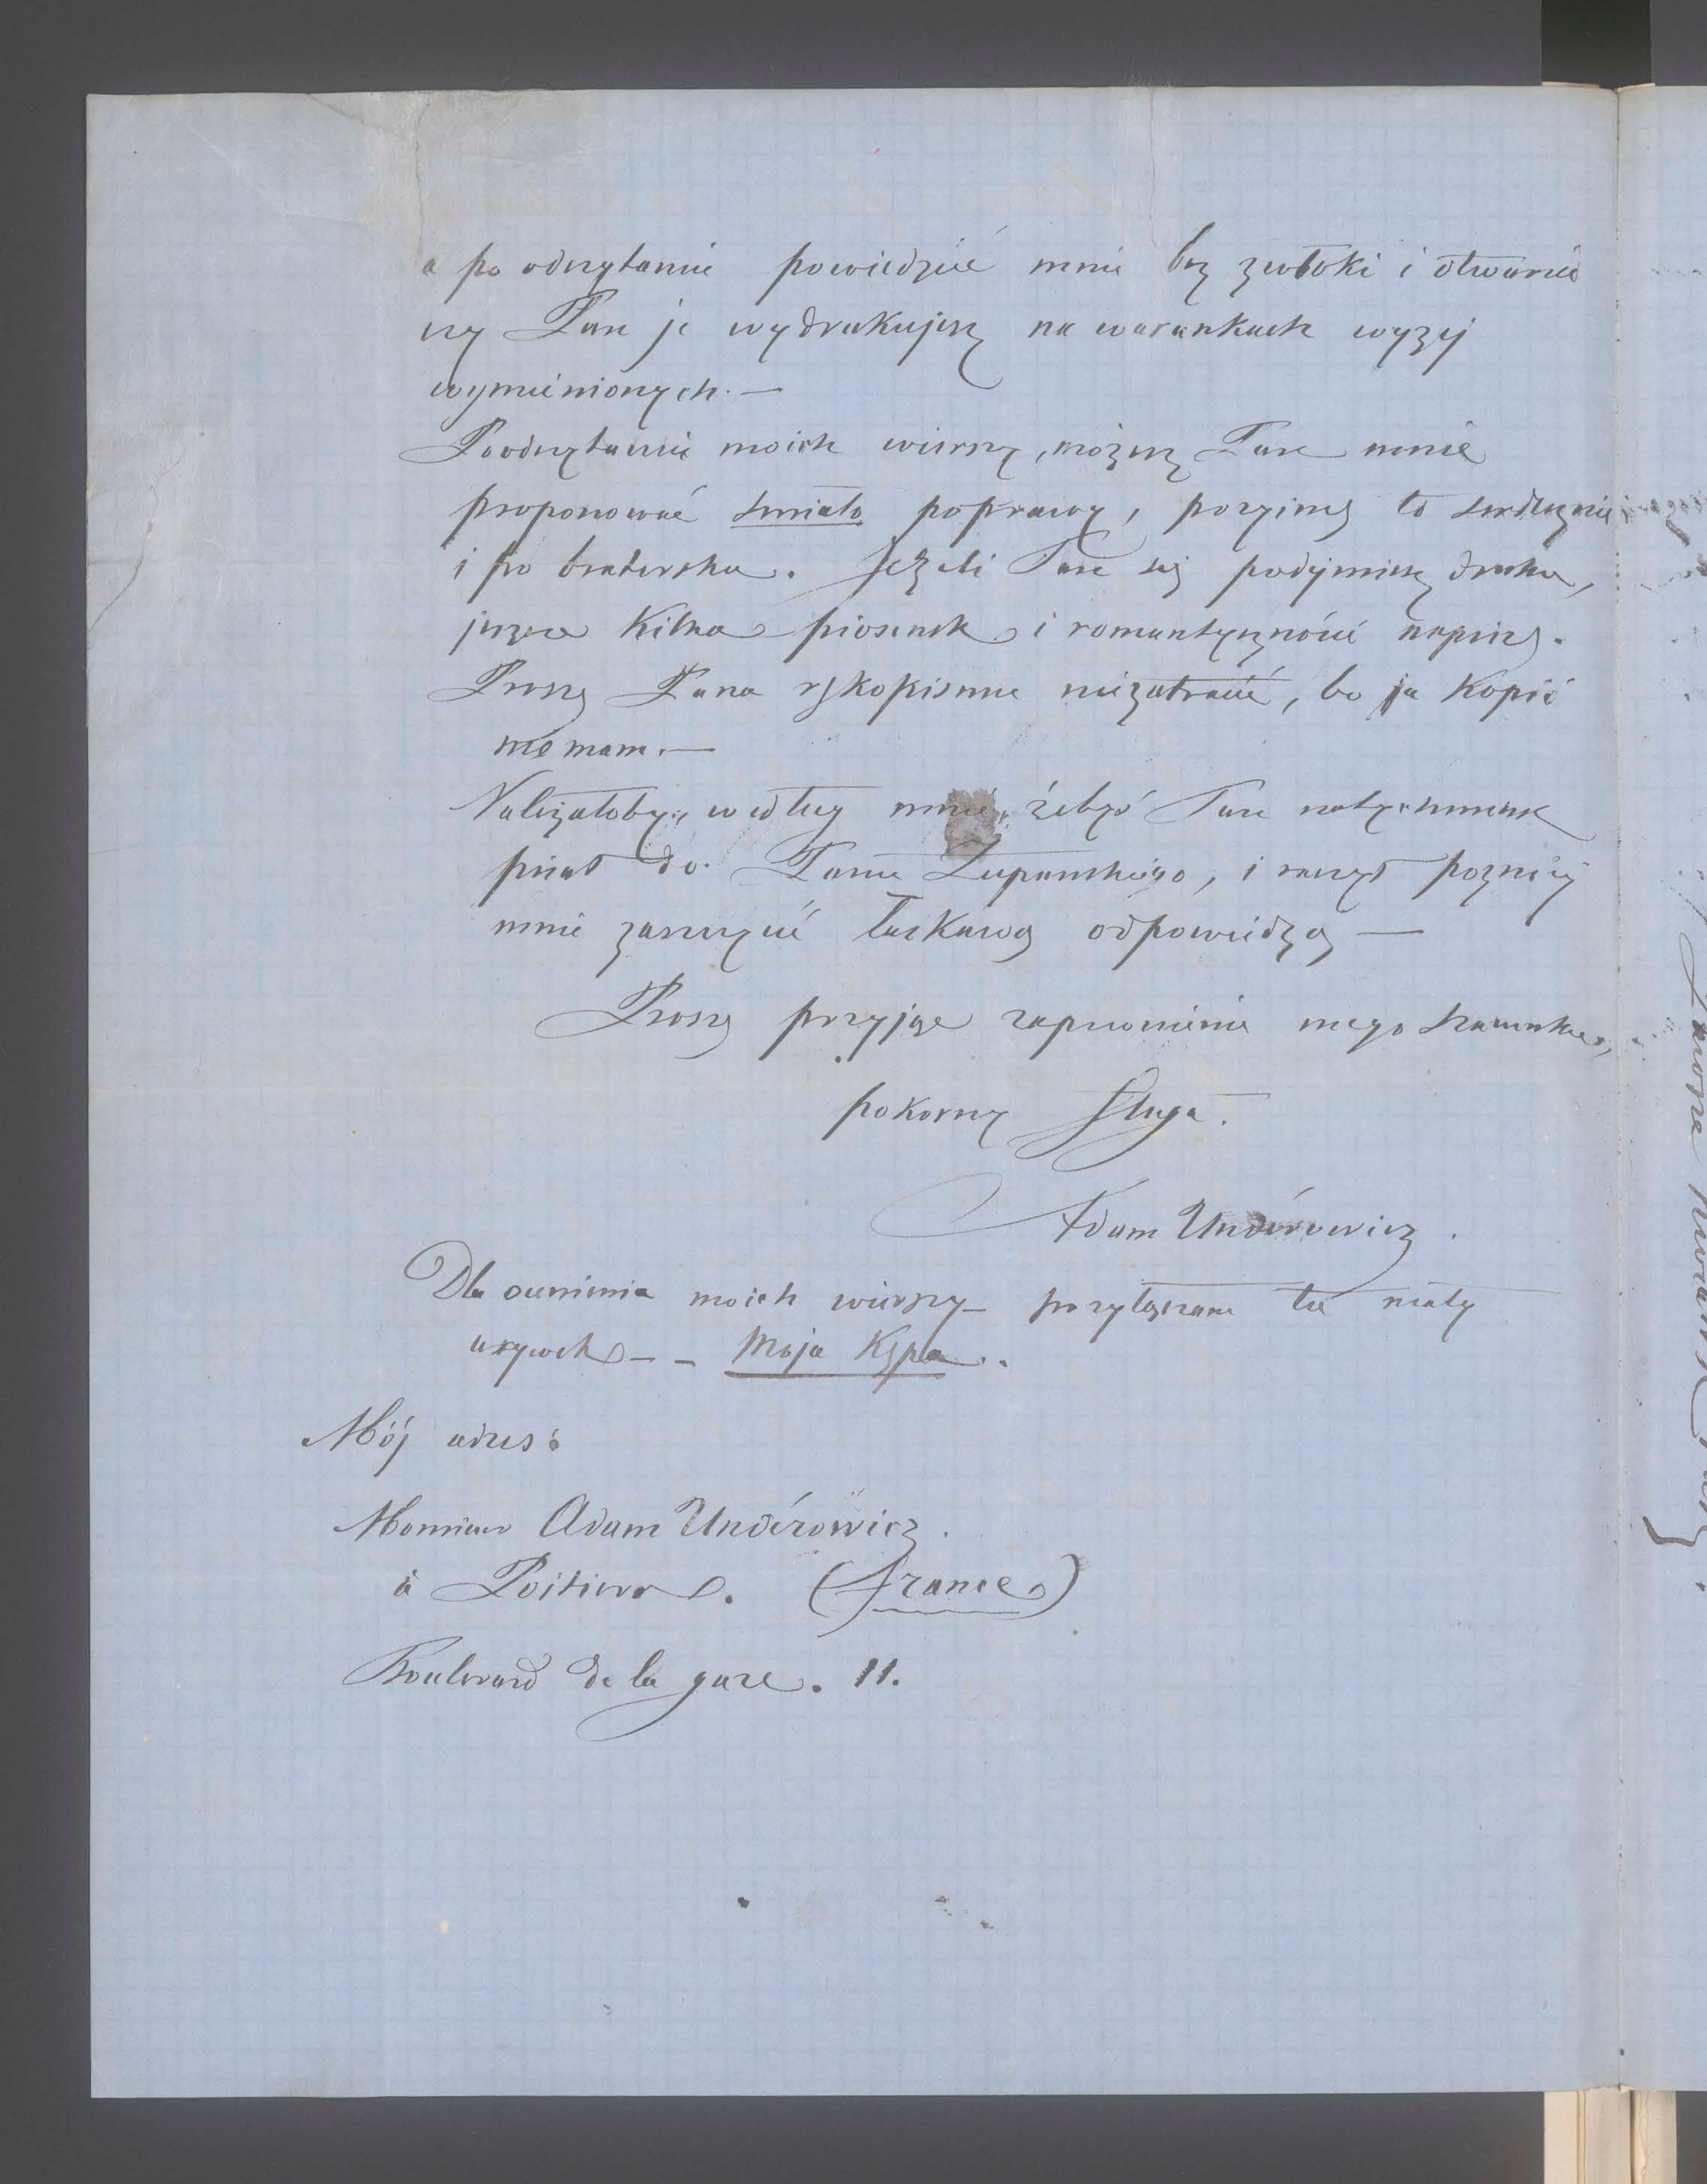 a po odczytaniu powiedzieć mnie bez zwłoki i otwarcie
czy Pan je wydrukujesz na warunkach wyzej
wymienionych. —
Poodczytaniu moich wierszy, możesz Pan mnie
proponować śmiało poprawy, przyimę to serdecznie
i po bratersku. Jeżeli Pan się podejmiesz druku,
jeszcze kilka piosenek i romantyczności napiszę.
Proszę Pana rękopismu niezatracić, bo ja kopii
nie mam. —
Należałoby, według mnie, żebyś Pan natychmiast
pisał do Pana Żupanskiego, i raczył pozniej
mnie zaszczycić łaskawą odpowiedzą —
Proszę przyjąć zapewnienie mego szacunku,
pokorny sługa.
Adam Underowicz.
Dla ocenienia moich wierszy — przyłączam tu mały
urywek — — Moja Kępa..
Mój adres:
Monsieur Adam Underowicz.
à Poitiers. (France)
Boulevard de la gare. 11.